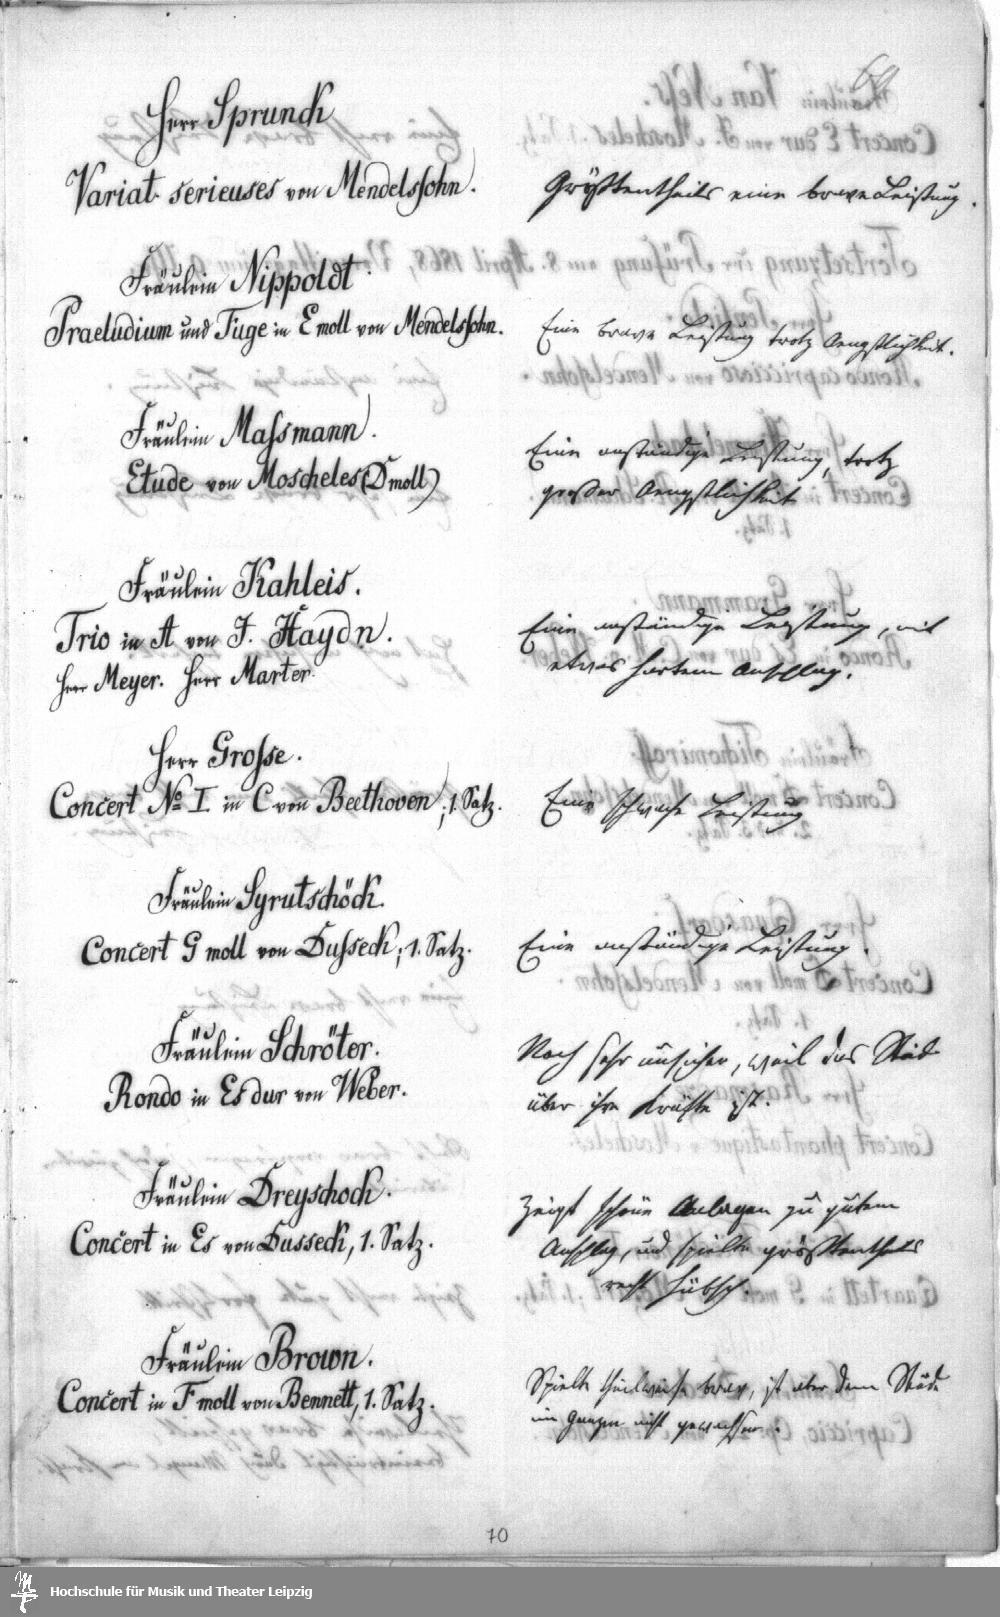 69
Herr Sprunck
Variat. serieuses von Mendelssohn.
Größtentheils eine brave Leistung.
Fräulein Nippoldt.
Praeludium und Fuge in E moll von Mendelssohn.
Eine brave Leistung trotz Aengstlichkeit.
Fräulein Massmann.
Etude von Moscheles (D moll)
Eine anständige Leistung, trotz
großer Aengstlichkeit
Fräulein Kahleis.
Trio in A von J. Haydn.
Herr Meyer. Herr Marter.
Eine anständige Leistung, mit
etwas hartem Anschlag.
Herr Grosse.
Concert No I in C von Beethoven, 1. Satz.
Eine schwache Leistung
Fräulein Syrutschöck.
Concert G moll von Dusseck, 1. Satz.
Eine anständige Leistung.
Fräulein Schröter.
Rondo in Es dur von Weber.
Noch sehr unsicher, weil das Stück
über ihre Kräfte ist.
Fräulein Dreyschock.
Concert in Es von Dusseck, 1. Satz.
Zeigt schöne Anlagen zu gutem
Anschlag, und spielte größtentheils
recht hübsch.
Fräulein Brown.
Concert in F moll von Bennett, 1. Satz.
Spielte theilweise brav, ist aber dem Stück
im Ganzen nicht gewachsen.
70
Hochschule für Musik und Theater Leipzig